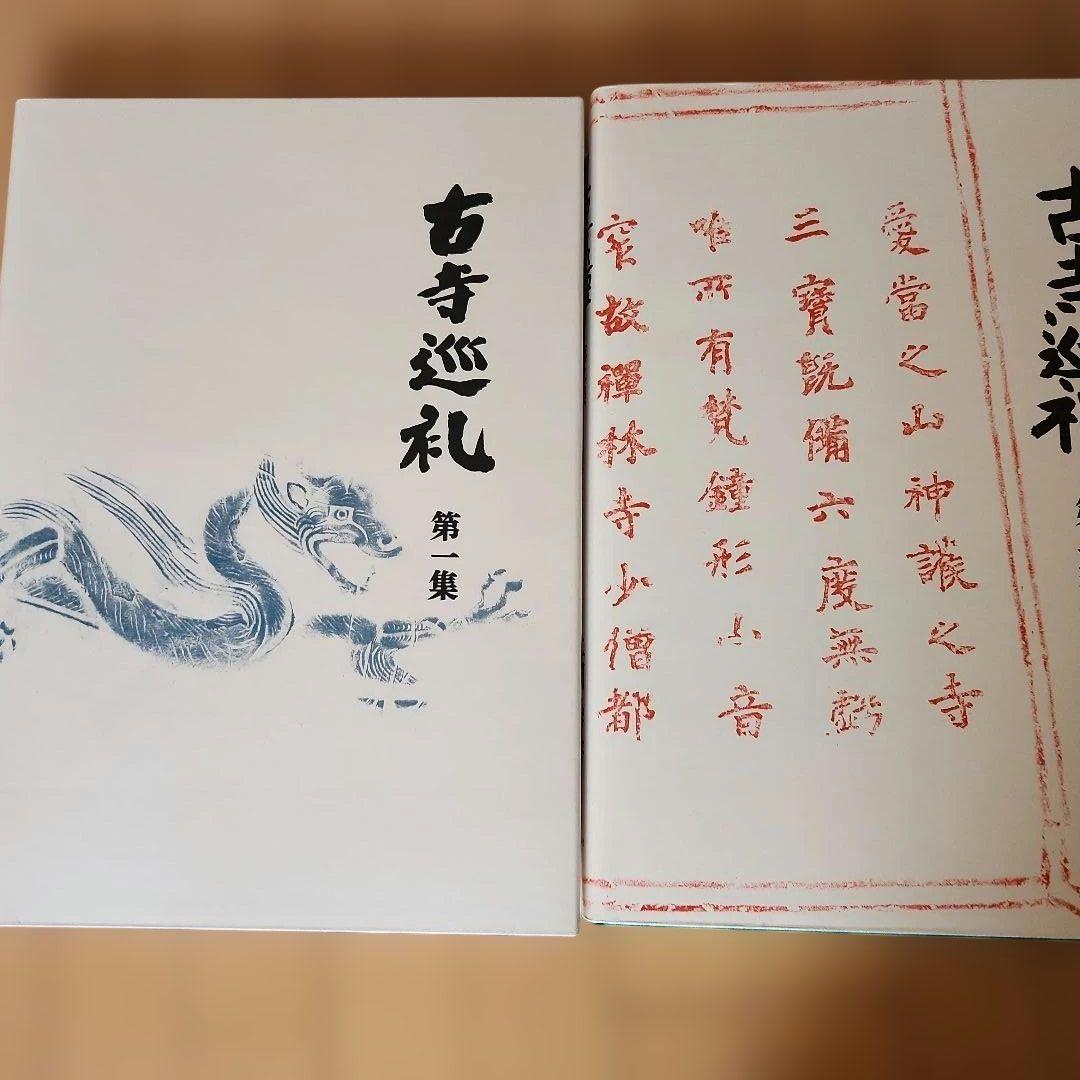 古寺巡礼
第一集
古寺巡礼
愛當之山神護之寺
三寶既備六度無虧
唯所有梵鐘形小音
窄故禪林寺少僧都